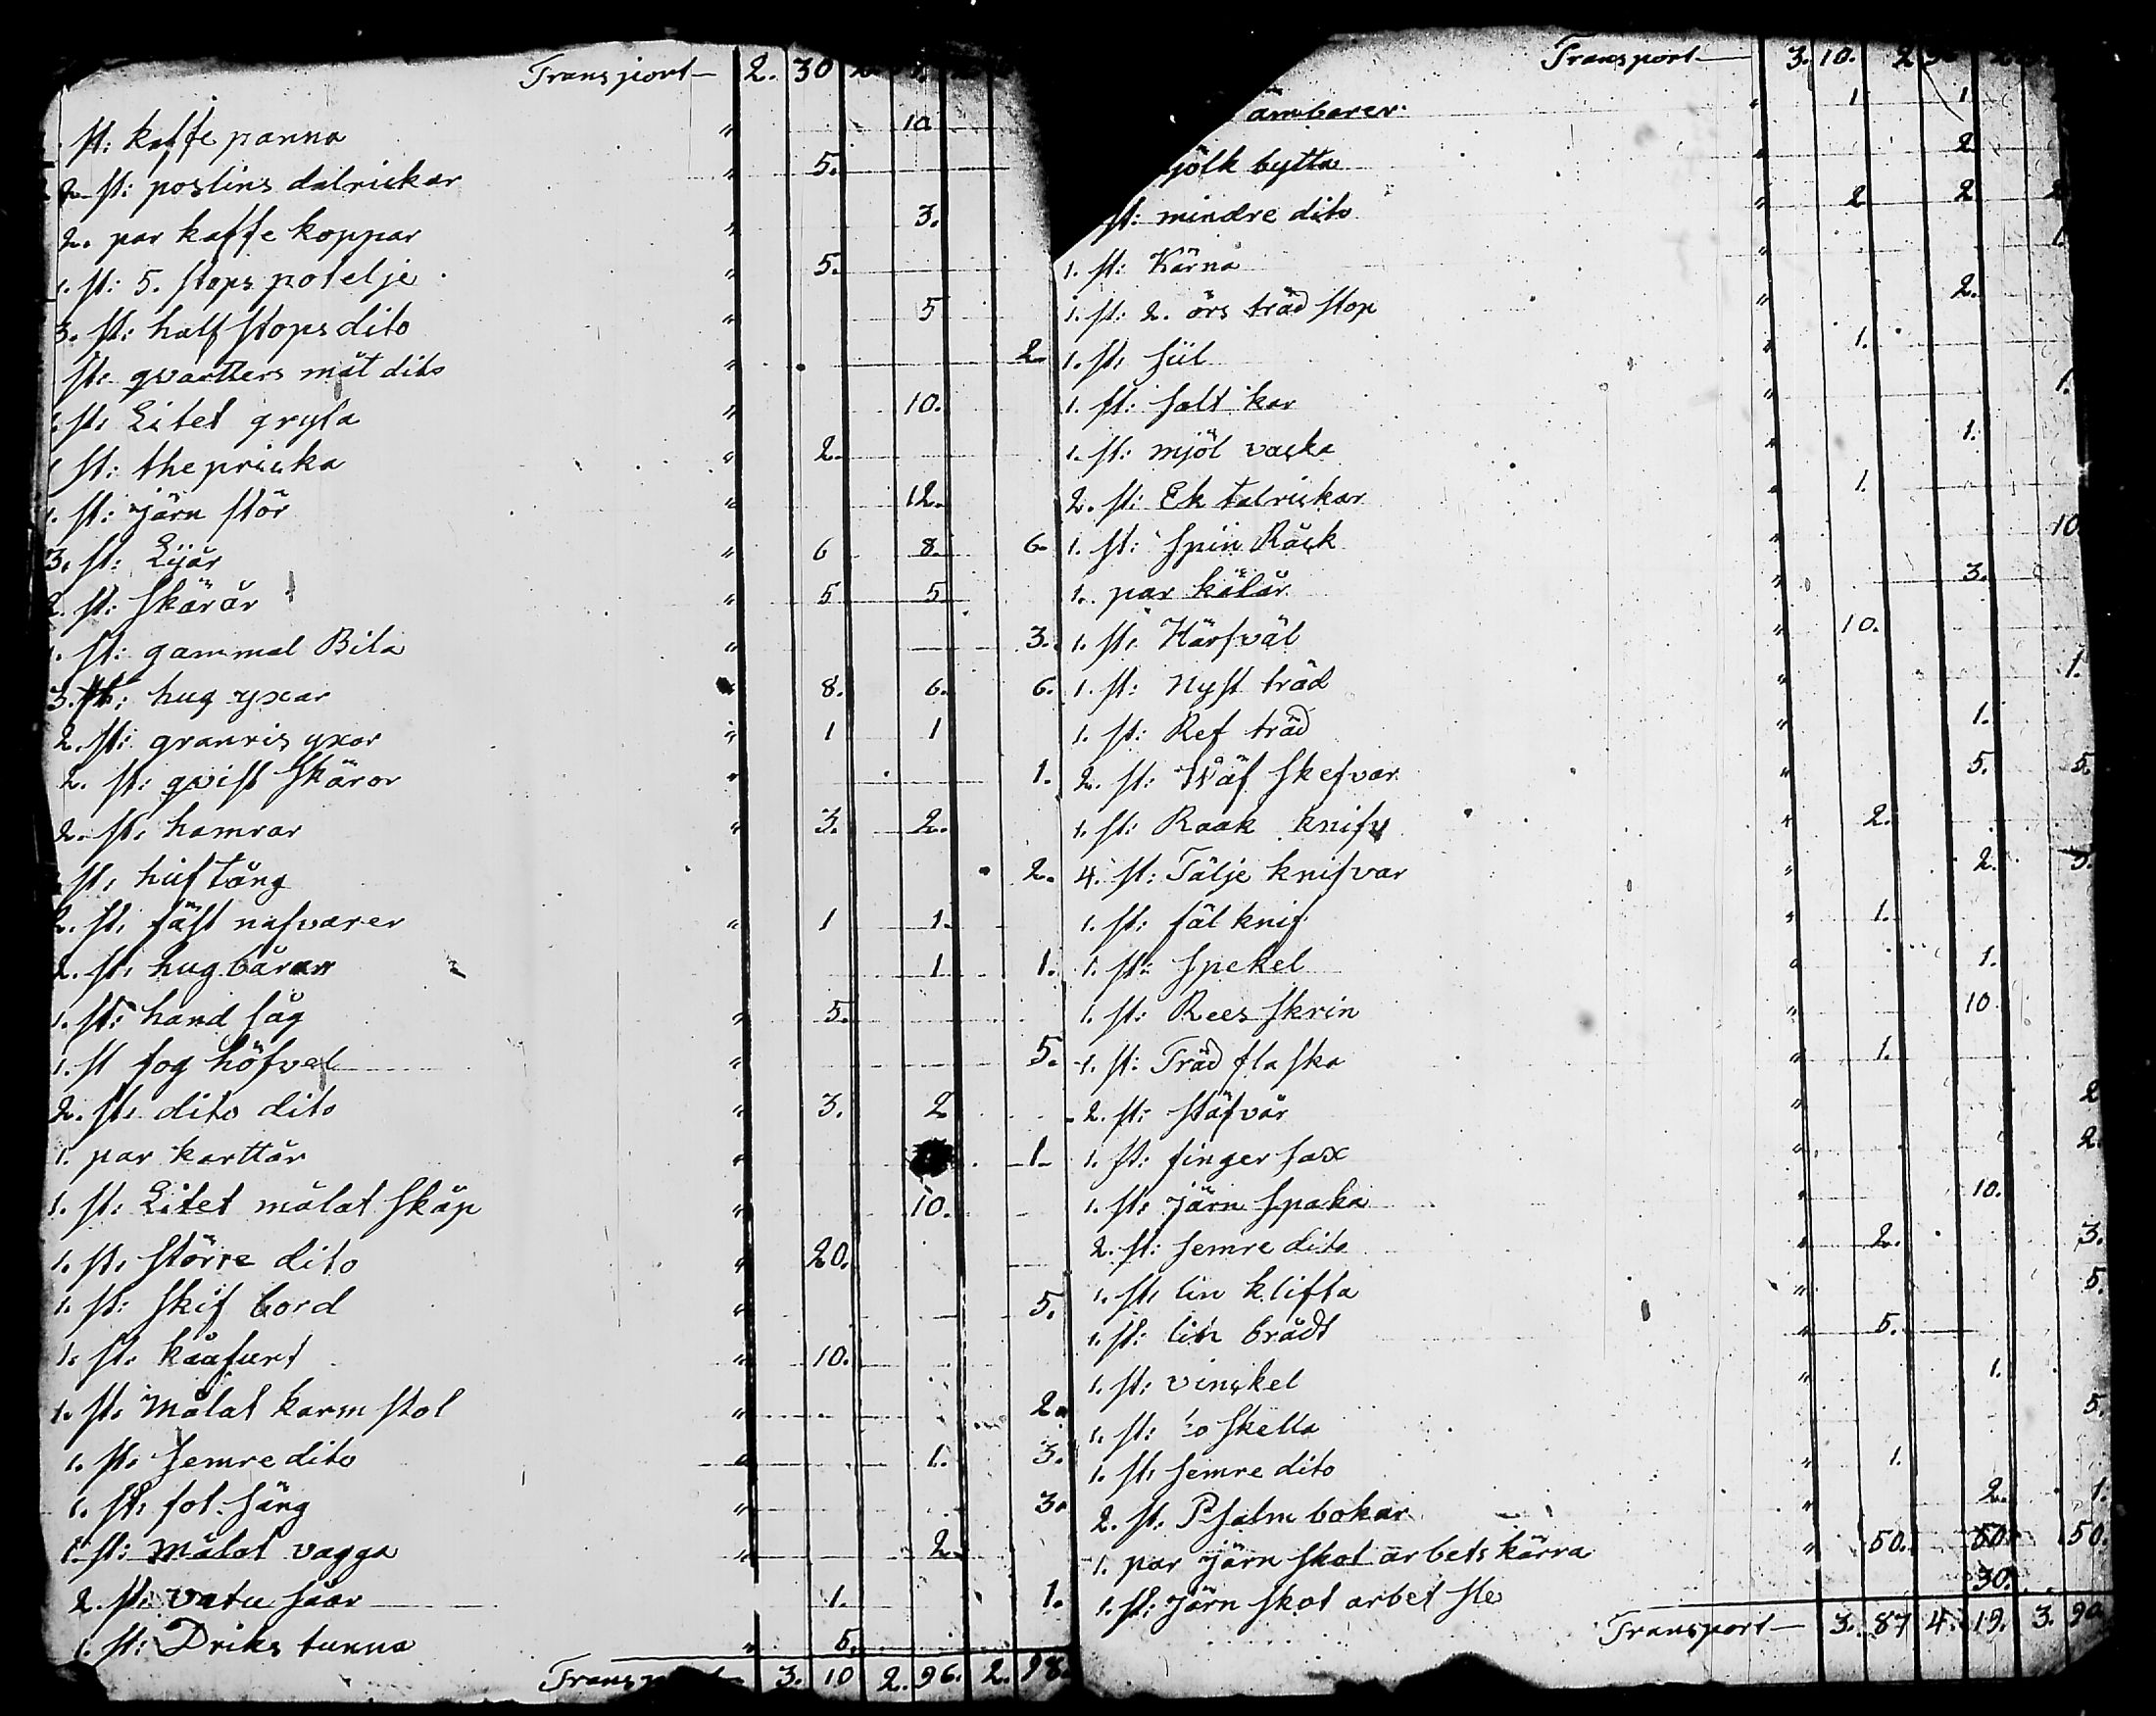 Transport — 2. 30
st: kaffe panna " 10
2. st: poslins dalrickar " 5.
2. par kaffe koppar " 3.
1. st: 5. stops potelje " 5.
3. st: half stops dito " 5
st: qvartters måt dito " 2
1. st: Litet gryta " 10.
1 st: the pricka " 2.
1. st: järn stör " 12.
3. st: Lijår " 6 8. 6.
2. st: skärår " 5 5
1. st: gammal Bila " 3.
3. st: hug yxar " 8. 6. 6.
2. st: granris yxor " 1 1
2. st: qvist skäror " 1.
2. st: hamrar " 3. 2.
st: huftång 2.
2. st: fäst nafvarer " 1 1.
2. st: hug bårar 1 1.
1. st: hand såg " 5.
1. st fog höfvel " 5.
2. st: dito dito " 3. 2
1. par karttår " 1
1. st: Litet målat skåp " 10.
1. st: större dito " 20.
1. st: skif bord " 5.
1. st: kååfurt " 10.
1. st: Målat karm stol " 2
1. st: semre dito " 1. 3.
1. st: fol. säng " 3.
1. st: Målat vagga " 2.
2. st: vatu såar 1. 1.
1. st: Driks tunna " 5.
Transport 3. 10 2. 96. 2. 98.
Transport — 3. 10. 2
ämbarer " 1 1
jölk bytta " 2
st: mindre dito " 2 2 2
1. st: Kärna " 1.
1. st: 2. örs träd stop " 2.
1. st: siil " 1.
1. st: salt kar " 1.
1. st: mjöl vacka " 1.
2. st: Ek talrickar " 1.
1. st: spin Råck " 10
1. par kälår " 3.
1. st: Härfväl " 10.
1. st: Nyst träd " 1.
1. st: Ref träd " 1.
2. st: Wäf skefvar " 5. 5.
1. st: Raak knifv " 2.
4. st: Tälje knifvar " 2. 5.
1. st: fäl knif " 1.
1. st: spekel " 1.
1. st: Rees skrin " 10
1. st: Träd flaska " 1.
2. st: stäfvår " 2
1. st: finger sax " 2.
1. st: järn spaka " 10.
2. st: semre dito " 2. 3.
1. st: lin klifta " 5.
1. st: lin brådt " 5.
1. st: vinckel " 1.
1. st: skella 5.
1. st: semre dito " 1.
2. st: Psalm bokar " 2. 1.
1. par järn skot arbets kärra " 50. 50. 50.
1. st: järn skot arbet 30.
Transport — 3. 87 4. 19. 3. 90